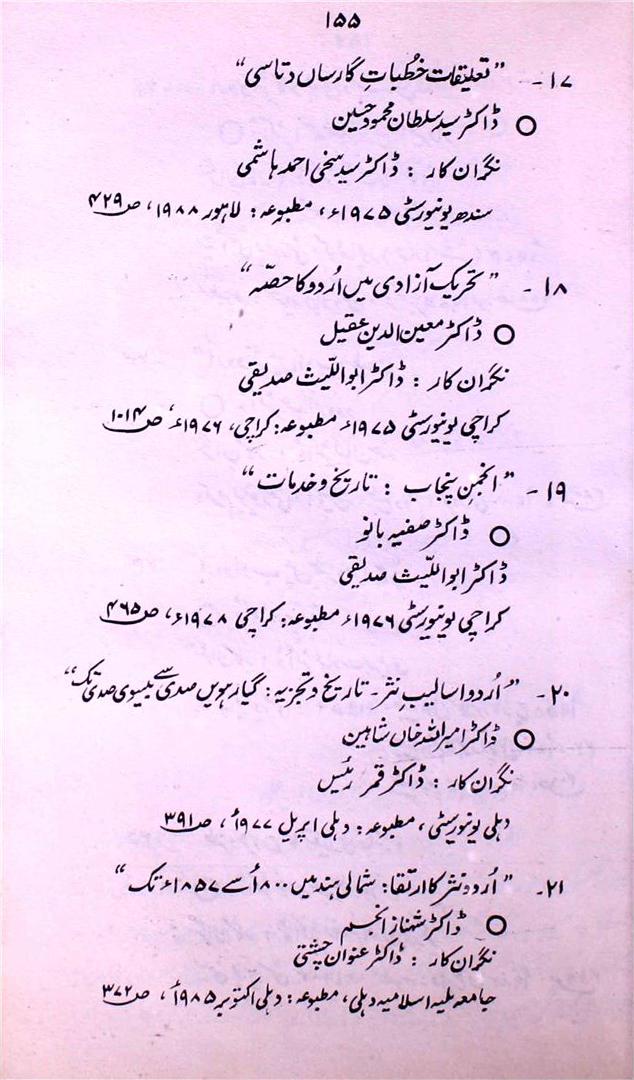 ۱۵۵
۱۷- "تعلیقات خُطباتِ گارساں دتاسی"
○ ڈاکٹر سید سلطان محمود حسین
نگران کار : ڈاکٹر سید سخی احمد ہاشمی
سندھ یونیورسٹی ۱۹۷۵ء، مطبوعہ: لاہور ۱۹۸۸، ص ۴۲۹
۱۸- "تحریک آزادی میں اُردو کا حصّہ"
○ ڈاکٹر معین الدین عقیل
نگران کار : ڈاکٹر ابواللّیث صدیقی
کراچی یونیورسٹی ۱۹۷۵ء مطبوعہ: کراچی، ۱۹۷۶ء، ص ۱۰۱۴
۱۹- "انجمنِ پنجاب : تاریخ و خدمات"
○ ڈاکٹر صفیہ بانو
ڈاکٹر ابواللّیث صدیقی
کراچی یونیورسٹی ۱۹۷۶ء مطبوعہ: کراچی ۱۹۷۸ء، ص ۴۶۵
۲۰- "اُردو اسالیبِ نثر۔ تاریخ و تجزیہ: گیارہویں صدی سے بیسوی صدی تک"
○ ڈاکٹر امیر اللہ خاں شاہین
نگران کار : ڈاکٹر قمر رئیس
دہلی یونیورسٹی، مطبوعہ: دہلی اپریل ۱۹۷۷ء، ص ۳۹۱
۲۱- "اُردو نثر کا ارتقا: شمالی ہند میں ۱۸۰۰ء سے ۱۸۵۷ء تک"
○ ڈاکٹر شہناز انجم
نگران کار : ڈاکٹر عنوان چشتی
جامعہ ملیہ اسلامیہ دہلی، مطبوعہ: دہلی اکتوبر ۱۹۸۵ء، ص ۳۷۲